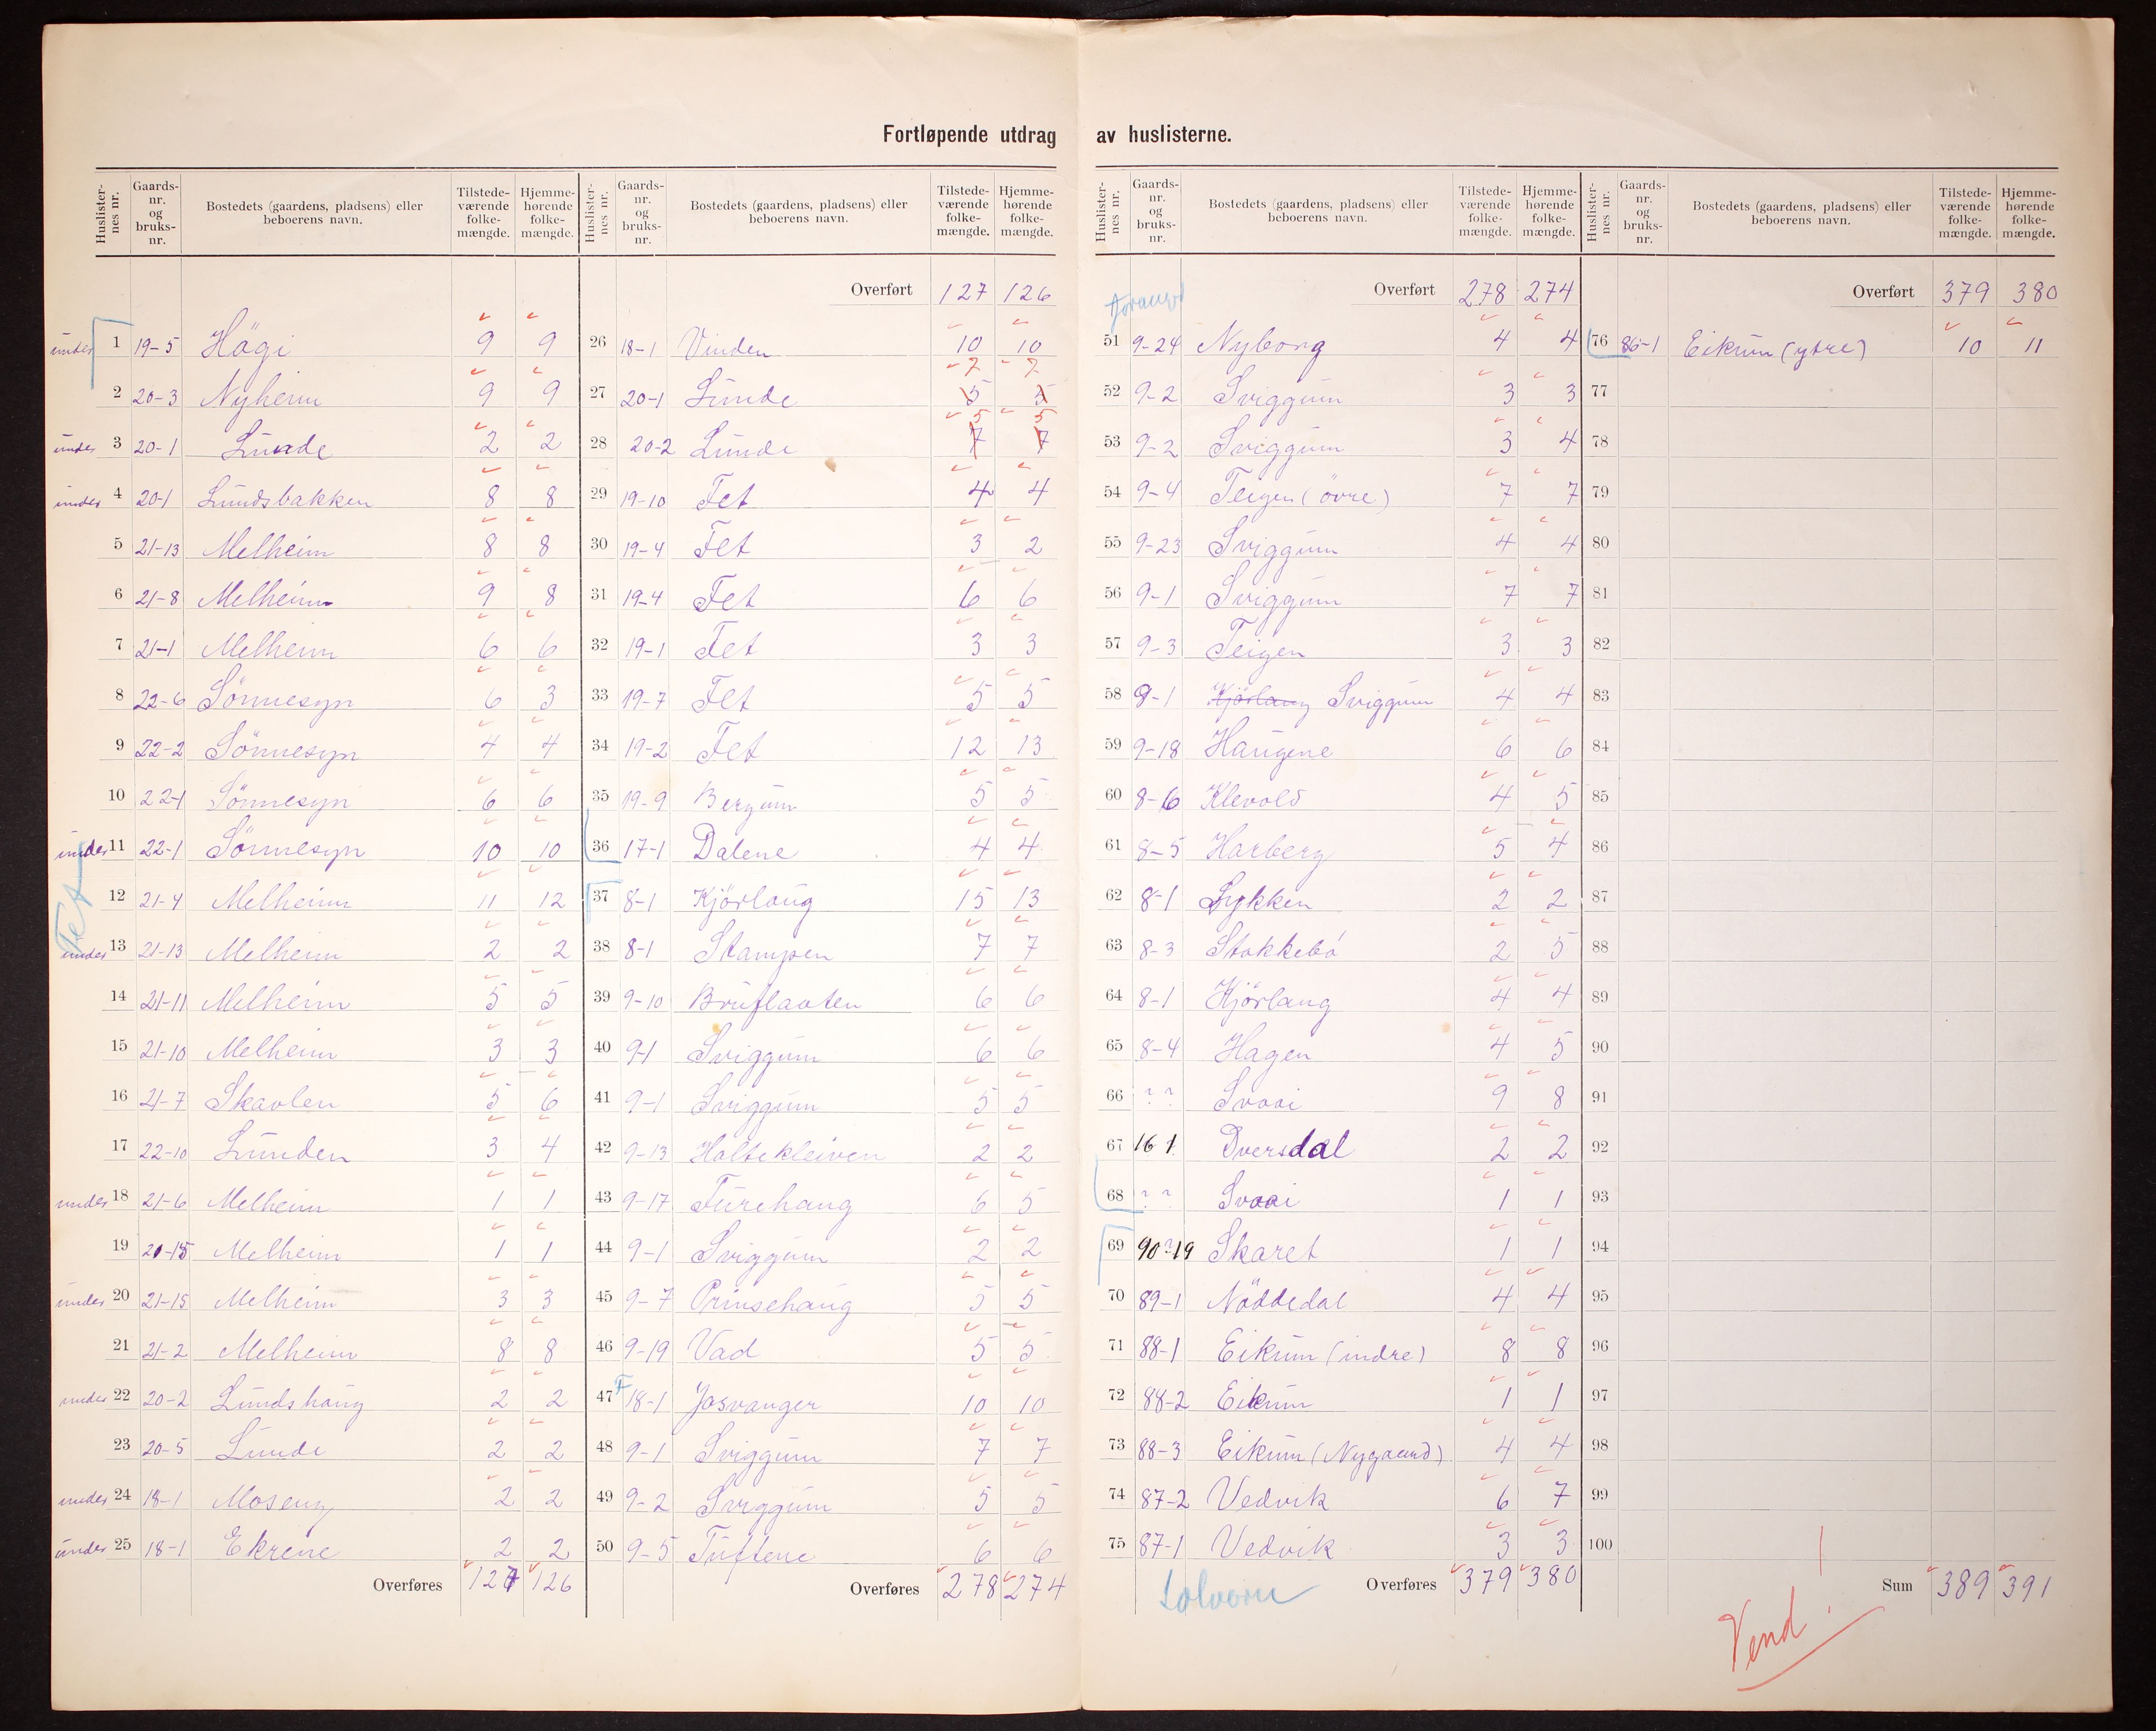 Fortløpende utdrag av huslisterne.
Huslister-nes nr. Gaards-nr. og bruks-nr. Bostedets (gaardens, pladsens) eller beboerens navn. Tilstede-værende folke-mængde. Hjemme-hørende folke-mængde.
undes 1 19-5 Högi 9 9
2 20-3 Nyheim 9 9
undes 3 20-1 Lunde 2 2
undes 4 20-1 Lundsbakken 8 8
5 21-13 Melheim 8 8
6 21-8 Melheim 9 8
7 21-1 Melheim 6 6
8 22-6 Sönnesyn 6 3
9 22-2 Sönnesyn 4 4
10 22-1 Sönnesyn 6 6
undes 11 22-1 Sönnesyn 10 10
Fet
12 21-4 Melheim 11 12
undes 13 21-13 Melheim 2 2
14 21-11 Melheim 5 5
15 21-10 Melheim 3 3
16 21-7 Skavlen 5 6
17 22-10 Lunden 3 4
undes 18 21-6 Melheim 1 1
19 20-15 Melheim 1 1
undes 20 21-15 Melheim 3 3
21 21-2 Melheim 8 8
undes 22 20-2 Lundshaug 2 2
23 20-5 Lunde 2 2
undes 24 18-1 Moseng 2 2
undes 25 18-1 Ekrene 2 2
Overføres 127 126
Huslister-nes nr. Gaards-nr. og bruks-nr. Bostedets (gaardens, pladsens) eller beboerens navn. Tilstede-værende folke-mængde. Hjemme-hørende folke-mængde.
Overført 127 126
26 18-1 Vinden 10 10
7 7
27 20-1 Lunde 5 5
5 5
28 20-2 Lunde 7 7
29 19-10 Fet 4 4
30 19-4 Fet 3 2
31 19-4 Fet 6 6
32 19-1 Fet 3 3
33 19-7 Fet 5 5
34 19-2 Fet 12 13
35 19-9 Bergum 5 5
36 17-1 Dalene 4 4
37 8-1 Kjörlaug 15 13
38 8-1 Stampen 7 7
39 9-10 Bruflaaten 6 6
40 9-1 Sviggum 6 6
41 9-1 Sviggum 5 5
42 9-13 Holtekleiven 2 2
43 9-17 Furehaug 6 5
44 9-1 Sviggum 2 2
45 9-7 Prinsehaug 5 5
46 9-19 Vad 5 5
47 F 18-1 Josvanger 10 10
48 9-1 Sviggum 7 7
49 9-2 Sviggum 5 5
50 9-5 Tuftene 6 6
Overføres 278 274
Huslister-nes nr. Gaards-nr. og bruks-nr. Bostedets (gaardens, pladsens) eller beboerens navn. Tilstede-værende folke-mængde. Hjemme-hørende folke-mængde.
Overført 278 274
51 9-24 Nyborg 4 4
52 9-2 Sviggum 3 3
53 9-2 Sviggum 3 4
54 9-4 Teigen (övre) 7 7
55 9-23 Sviggum 4 4
56 9-1 Sviggum 7 7
57 9-3 Teigen 3 3
58 9-1 Kjörlaug Sviggum 4 4
59 9-18 Haugene 6 6
60 8-6 Klevold 4 5
61 8-5 Harberg 5 4
62 8-1 Lykken 2 2
63 8-3 Stokkebö 2 5
64 8-1 Kjörlaug 4 4
65 8-4 Hagen 4 5
66 ? ? Svaai 9 8
67 16 1 Dversdal 2 2
68 ? ? Svaai 1 1
69 90-19 Skaret 1 1
70 89-1 Nöddedal 4 4
71 88-1 Eikum (indre) 8 8
72 88-2 Eikum 1 1
73 88-3 Eikum (Nygaard) 4 4
74 87-2 Vedvik 6 7
75 87-1 Vedvik 3 3
Solvorn Overføres 379 380
Huslister-nes nr. Gaards-nr. og bruks-nr. Bostedets (gaardens, pladsens) eller beboerens navn. Tilstede-værende folke-mængde. Hjemme-hørende folke-mængde.
Overført 379 380
76 86-1 Eikum (ytre) 10 11
77
78
79
80
81
82
83
84
85
86
87
88
89
90
91
92
93
94
95
96
97
98
99
100
Sum 389 391
Vend!